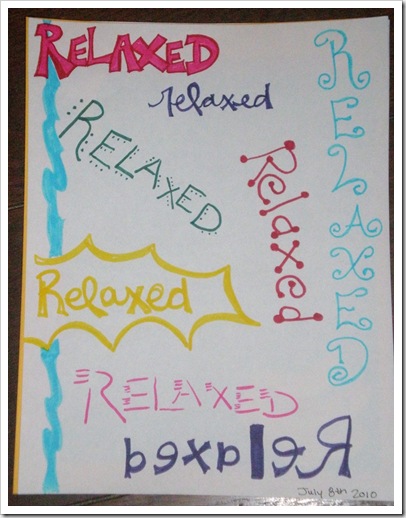 RELAXED
relaxed
RELAXED
RELAXED
Relaxed
Relaxed
RELAXED
Relaxed
July 8th 2010